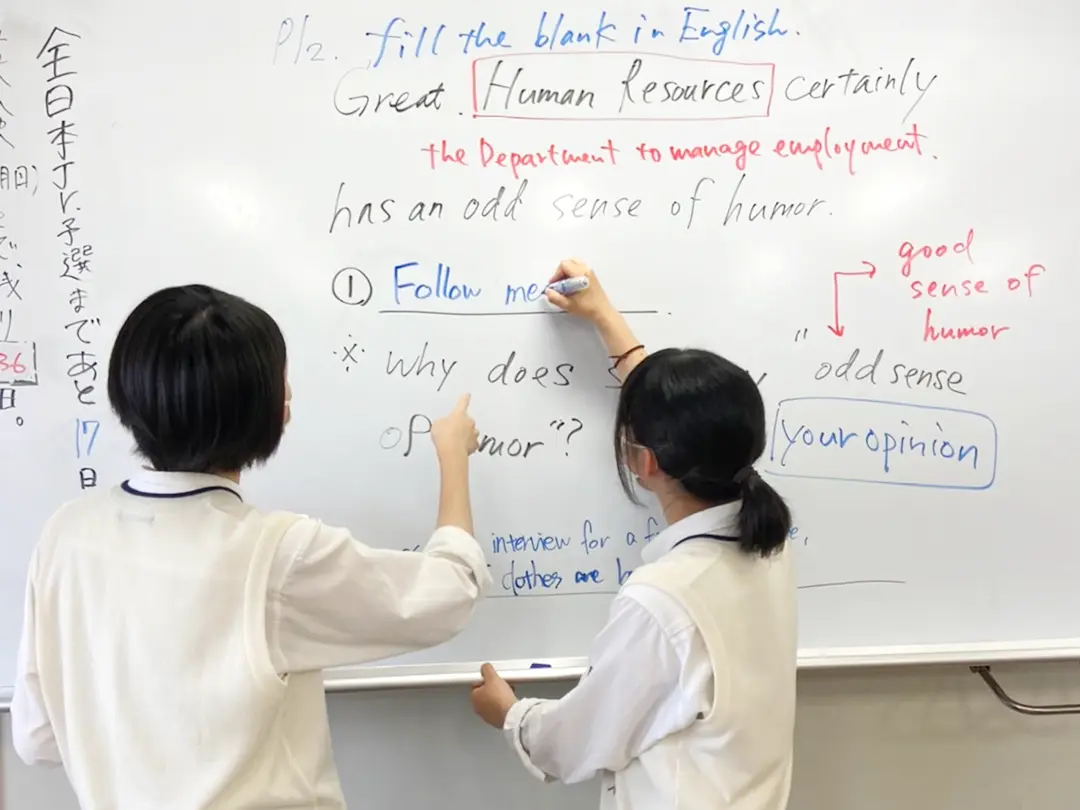 P12. fill the blank in English.
Great. Human Resources certainly
the Department to manage employment.
has an odd sense of humor.
① Follow me
※ Why does
of humor"?
good
sense of
humor
"odd sense
your opinion
interview for a
clothes are
全日本Jr.予選まであと17日
36
日。